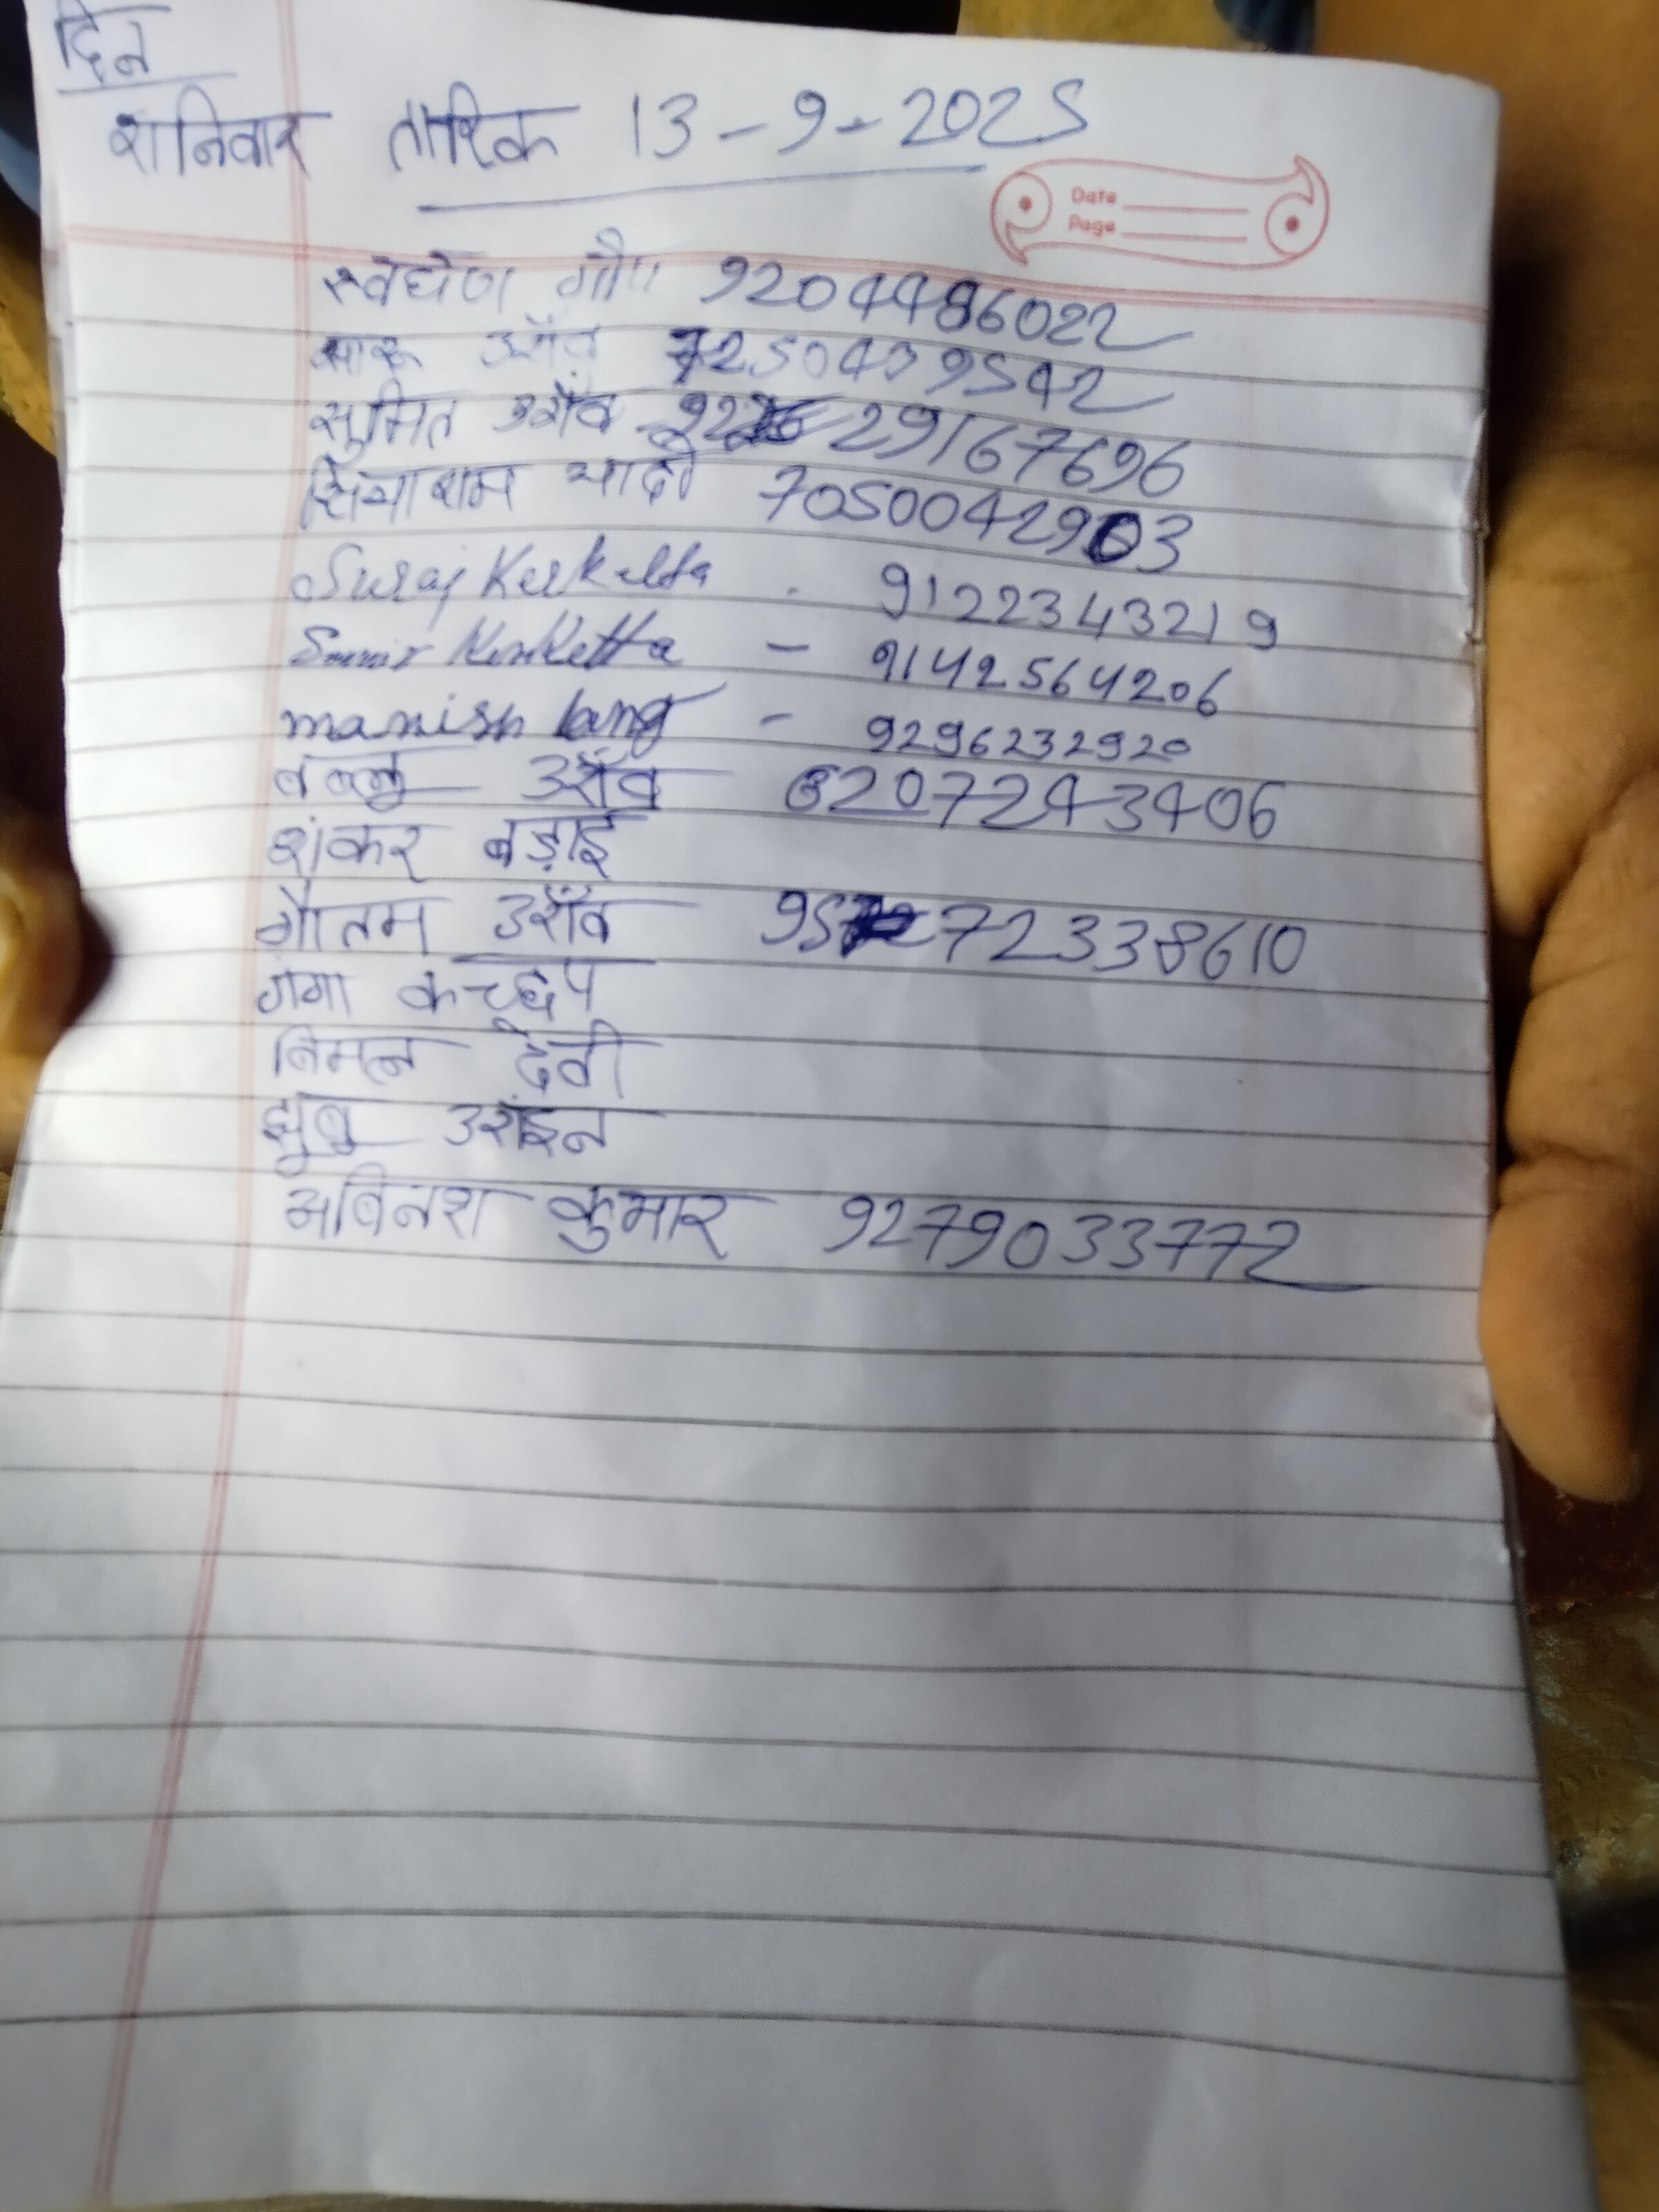 दिन
शनिवार तारिक 13-9-2025
Date
Page
गोप 9204486022
उराँव 7250439542
सुमित उराँव 29167696
सियाराम यादो 7050042903
Suraj Kerketta - 9122343219
Kerketta - 9142564206
manish - 9296232920
बबलु उराँव 6207243406
शंकर बड़ाई
गौतम उराँव 9572338610
गंगा कच्छप
निमन देवी
झुबु उराइन
अबिनश कुमार 9279033772